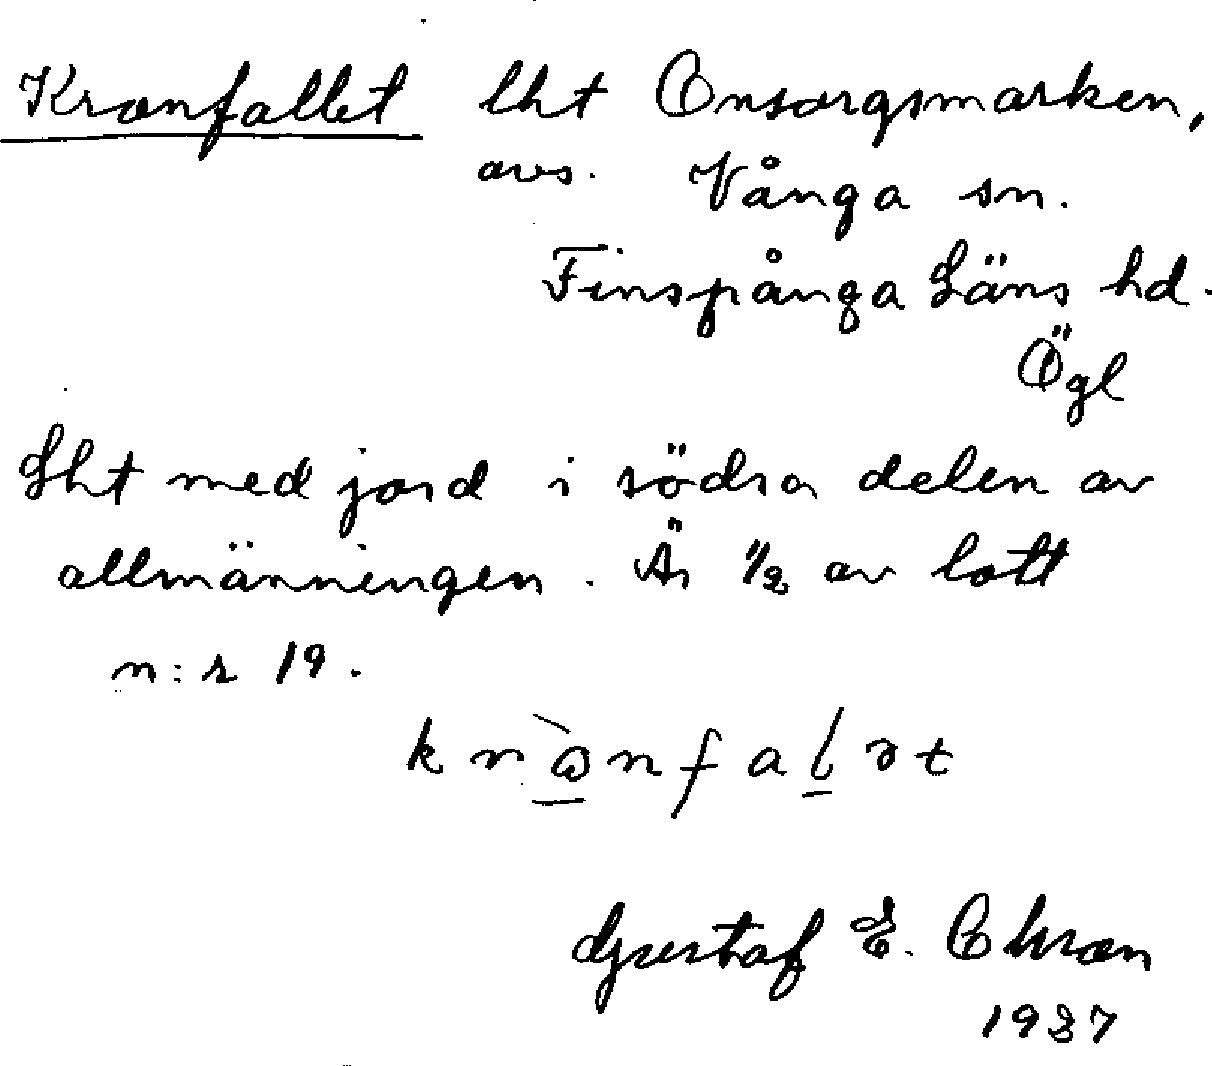 Kronfallet lht Onsorgsmarken,
avs. Vånga sn.
Finspånga Läns hd.
Ögl
Lht med jord i södra delen av
allmänningen. Är 1/2 av lott
n:r 19.
Gustaf E. Chron
1937